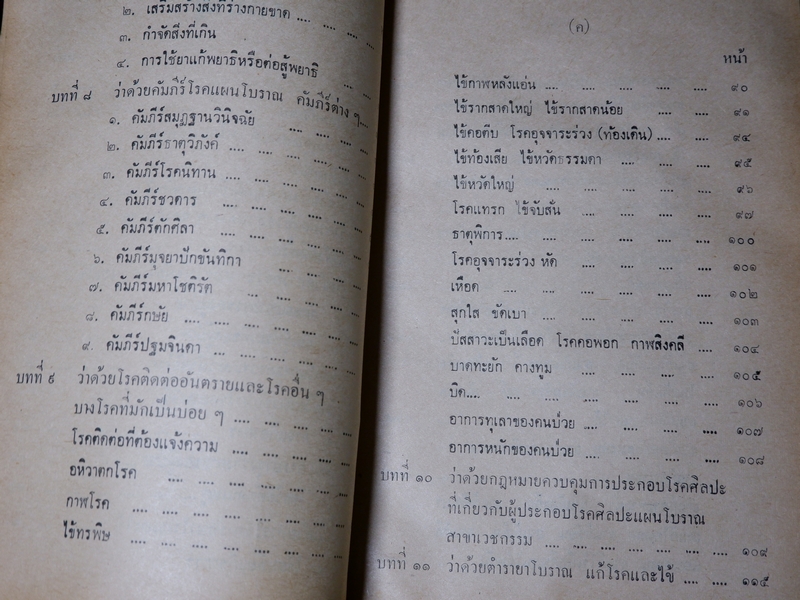 ๒. เสริมสร้างสิ่งที่ร่างกายขาด .... ....
๓. กำจัดสิ่งที่เกิน
๔. การใช้ยาแก้พยาธิหรือต่อสู้พยาธิ .... ....
บทที่ ๘ ว่าด้วยคัมภีร์โรคแผนโบราณ คัมภีร์ต่าง ๆ....
๑. คัมภีร์สมุฏฐานวินิจฉัย .... .... ....
๒. คัมภีร์ธาตุวิภังค์ .... .... .... .... ....
๓. คัมภีร์โรคนิทาน .... .... .... .... ....
๔. คัมภีร์ชวดาร .... .... .... .... ....
๕. คัมภีร์ตักศิลา .... .... .... .... ....
๖. คัมภีร์มุจฉาปักขันทิกา .... .... ....
๗. คัมภีร์มหาโชติรัต ... .... .... ....
๘. คัมภีร์กษัย .... .... .... .... .... ....
๙. คัมภีร์ปฐมจินดา ... .... .... .... ....
บทที่ ๙ ว่าด้วยโรคติดต่ออันตรายและโรคอื่น ๆ
บางโรคที่มักเป็นบ่อย ๆ .... .... .... ....
โรคติดต่อที่ต้องแจ้งความ .... .... .... ....
อหิวาตกโรค .... .... .... .... .... ....
กาฬโรค .... .... .... .... .... .... ....
ไข้ทรพิษ ... .... .... .... .... .... ....
(ค)
หน้า
ไข้กาฬหลังแอ่น .... .... .... .... .... ๙๐
ไข้รากสาดใหญ่ ไข้รากสาดน้อย .... .... .... ๙๑
ไข้คอตีบ โรคอุจจาระร่วง (ท้องเดิน) .... .... .... ๙๔
ไข้ท้องเสีย ไข้หวัดธรรมดา .... .... .... ๙๕
ไข้หวัดใหญ่ .... .... .... .... .... ๙๖
โรคแทรก ไข้จับสั่น .... .... .... .... ๙๗
ธาตุพิการ.... .... .... .... .... .... ๑๐๐
โรคอุจจาระร่วง หัด .... .... .... .... ๑๐๑
เหือด .... .... .... .... .... .... ๑๐๒
สุกใส ขัดเบา .... .... .... .... .... ๑๐๓
ปัสสาวะเป็นเลือด โรคคอพอก กาฬสิงคลี .... ๑๐๔
บาดทะยัก คางทูม .... .... .... .... ๑๐๕
บิด.... .... .... .... .... .... .... ๑๐๖
อาการทุเลาของคนป่วย .... .... .... .... ๑๐๗
อาการหนักของคนป่วย .... .... .... .... ๑๐๘
บทที่ ๑๐ ว่าด้วยกฎหมายควบคุมการประกอบโรคศิลปะ
ที่เกี่ยวกับผู้ประกอบโรคศิลปะแผนโบราณ
สาขาเวชกรรม .... .... .... .... .... .... .... ๑๐๙
บทที่ ๑๑ ว่าด้วยตำรายาโบราณ แก้โรคและไข้ .... .... ๑๑๕